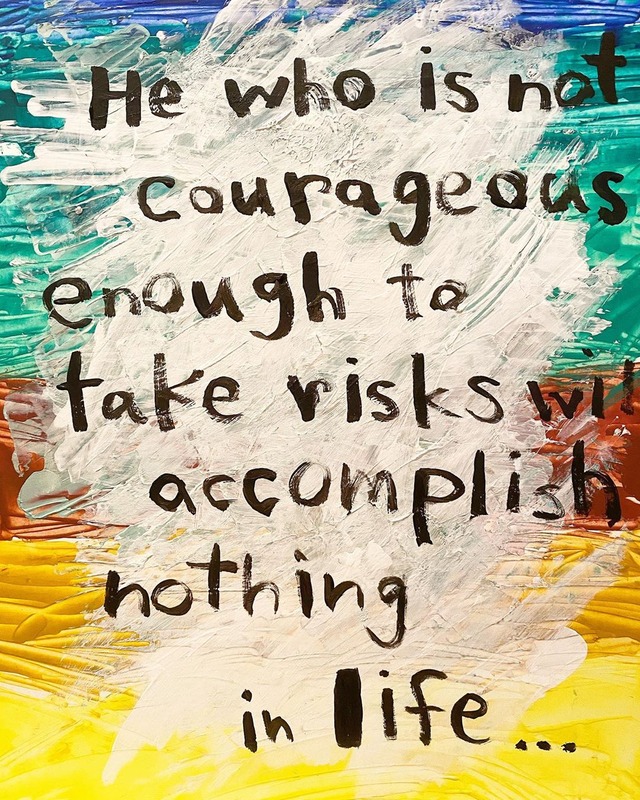 He who is not
courageous
enough to
take risks will
accomplish
nothing
in life...